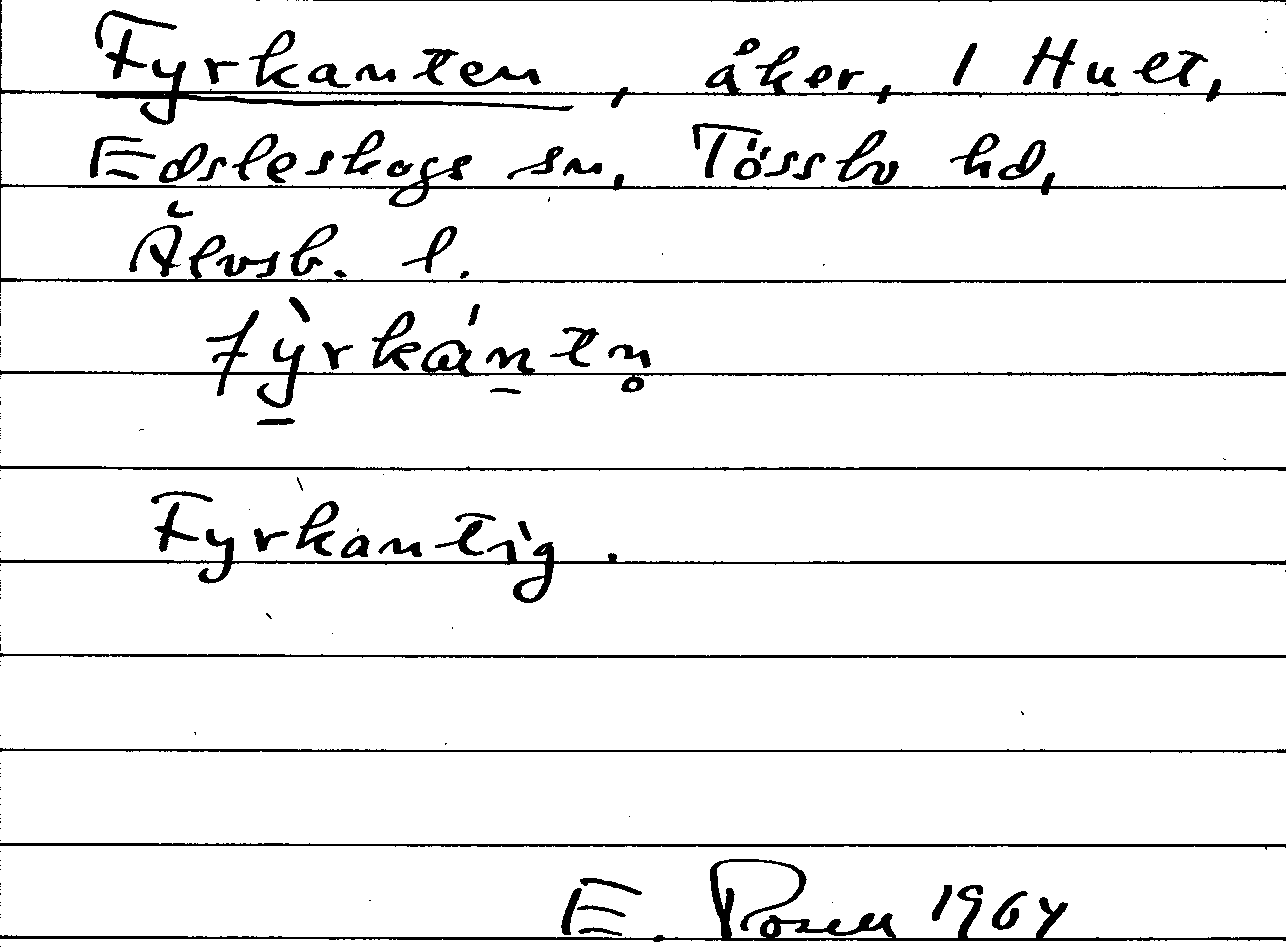 Fyrkanten, åker, 1 Hult,
Edsleskogs sn, Tössbo hd,
Älvsb. l.
fỳ̠rkán̠tn̥
Fyrkantig.
E. Rosell 1964